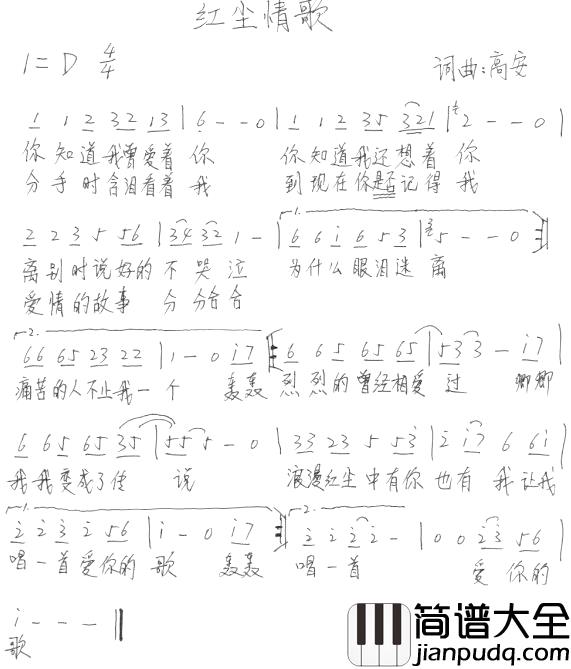 红尘情歌
1=D 4/4
词曲:高安
1 1 2 32 13 | 6 - - 0 | 1 1 2 35 321 | 2 - - 0 |
你知道我曾爱着 你 你知道我还想着 你
分手时含泪看着 我 到现在你是否记得 我
1.
2 2 3 5 56 | 34 32 1 - | 6 6 i 6 5 3 | 5 - - 0
离别时说好的 不哭泣 为什么眼泪迷离
爱情的故事 分分合合
2.
66 65 23 22 | 1 - 0 i7 6 65 65 65 | 53 3 - i7 |
痛苦的人不止我一个 轰轰 烈烈的曾经相爱 过 卿卿
6 65 65 35 | 55 5 - 0 | 33 23 5 53 | 2 i7 6 6i |
我我变成了传 说 浪漫红尘中有你也有 我让我
1. 2.
2 2 3 2 56 | i - 0 i7 2 2 2 2 - | 0 0 23 56 |
唱一首爱你的 歌 轰轰 唱一首 爱你的
i - - -
歌
简谱大全
jianpudq.com